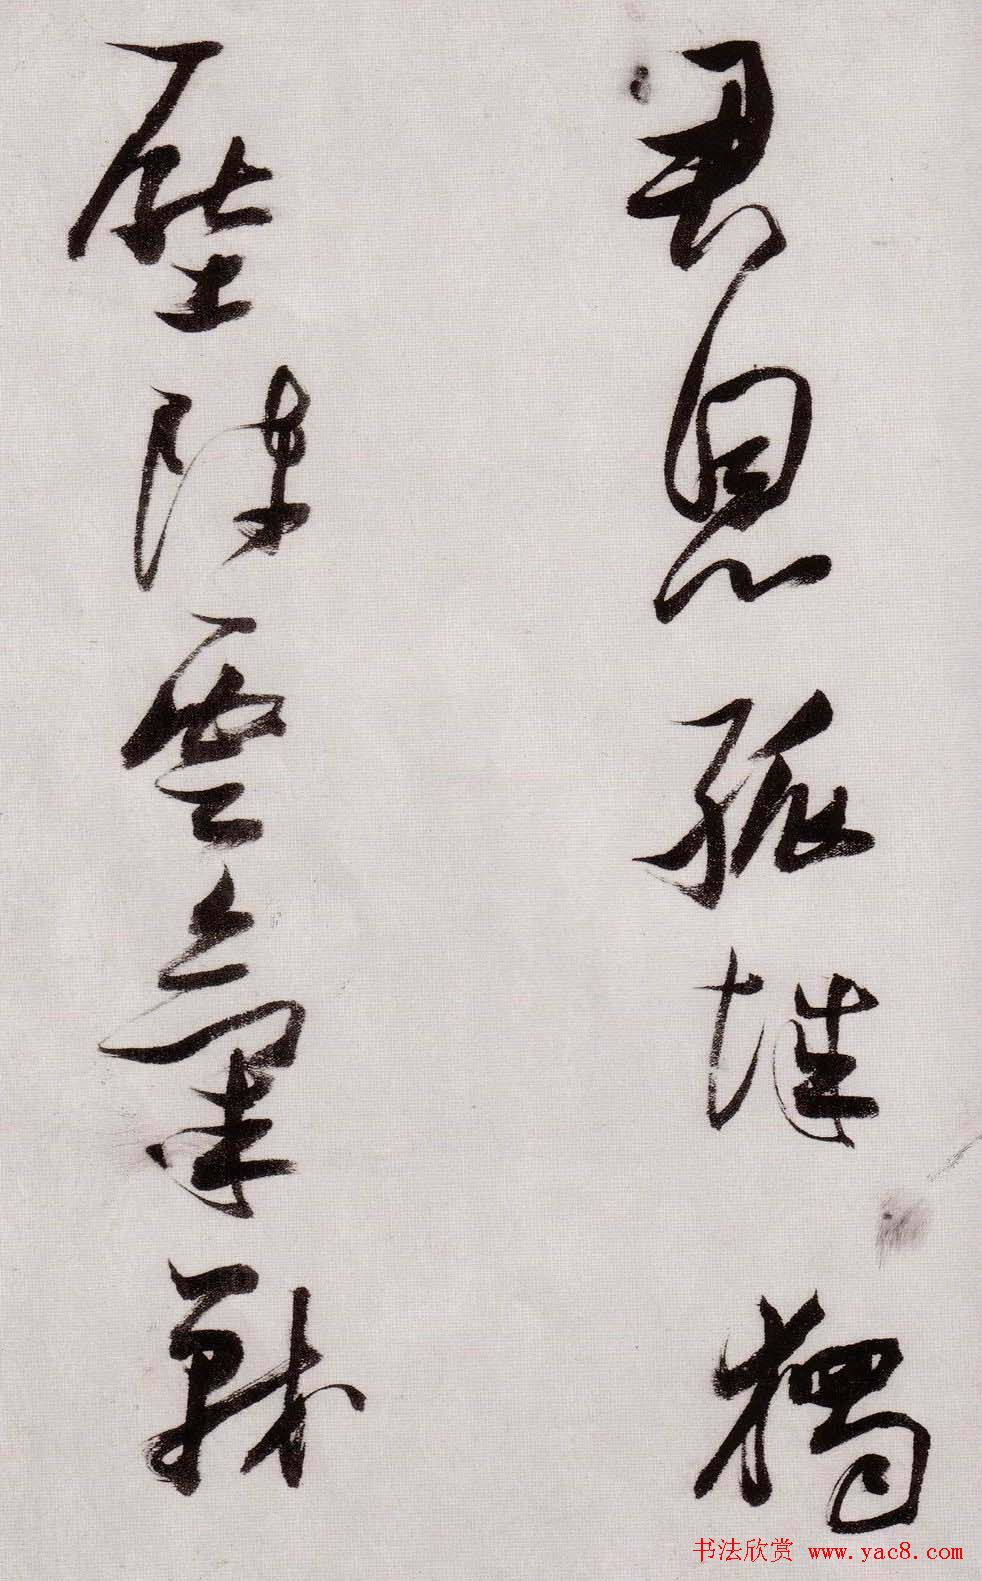 君恩孤獨
壓陣雲氣戰
书法欣赏 www.yac8.com